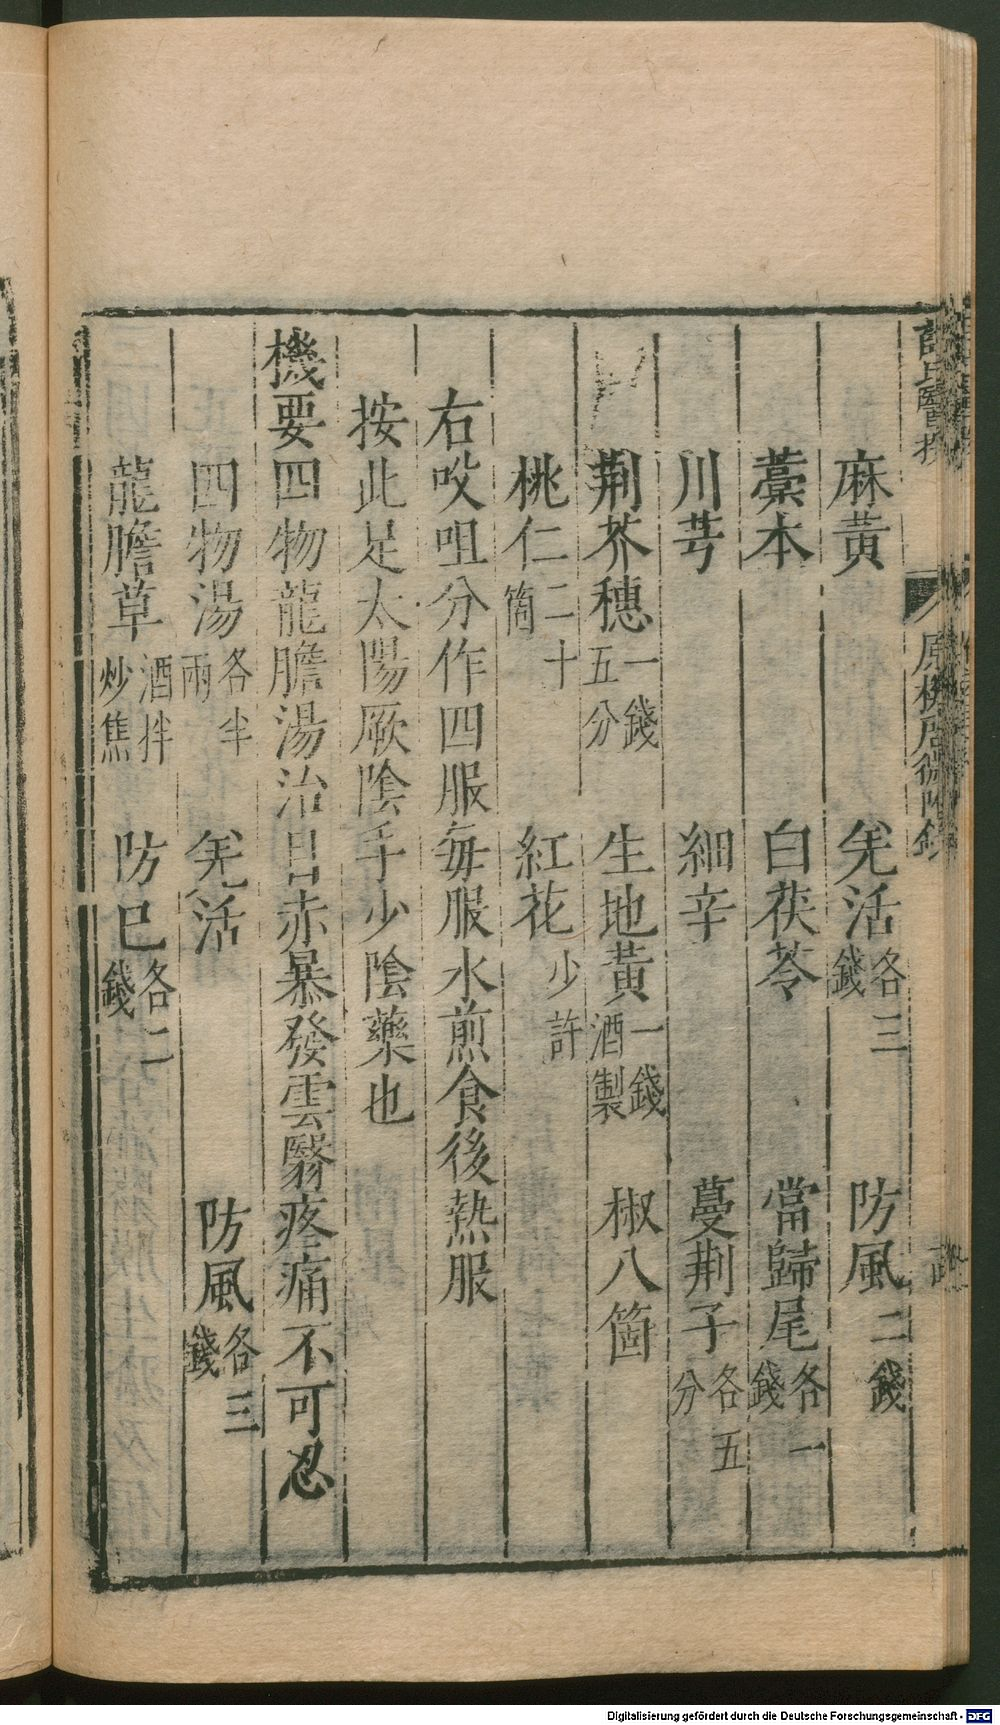 麻黃　羌活各三錢　防風二錢
藁本　白茯苓　當歸尾各一錢
川芎　細辛　蔓荆子各五分
荆芥穗一錢五分　生地黃一錢酒製　椒八箇
桃仁二十箇　紅花少許
右㕮咀分作四服每服水煎食後熱服
按此足太陽厥陰手少陰藥也
機要四物龍膽湯治目赤暴發雲翳疼痛不可忍
四物湯各半兩　羌活　防風各三錢
龍膽草酒拌炒焦　防巳各二錢
原機啓微附錄
Digitalisierung gefördert durch die Deutsche Forschungsgemeinschaft - DFG